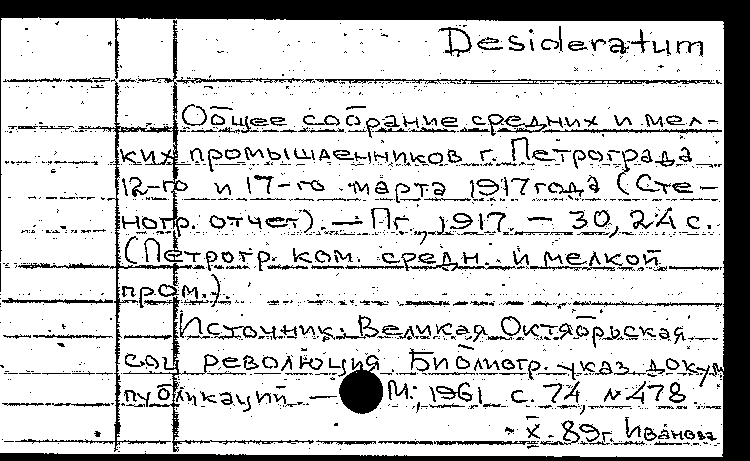 Desideratum
Общее собрание средних и мел-
ких промышленников г. Петрограда
12-го и 17-го марта 1917 года (Сте-
ногр. отчет). — Пг., 1917. — 30, 24 с.
(Петрогр. ком. средн. и мелкой
пром.).
Источник: Великая Октябрьская
соц. революция. Библиогр. указ. докум.
публикаций. — М., 1961. с. 74, № 478.
X. 89г. Иванова